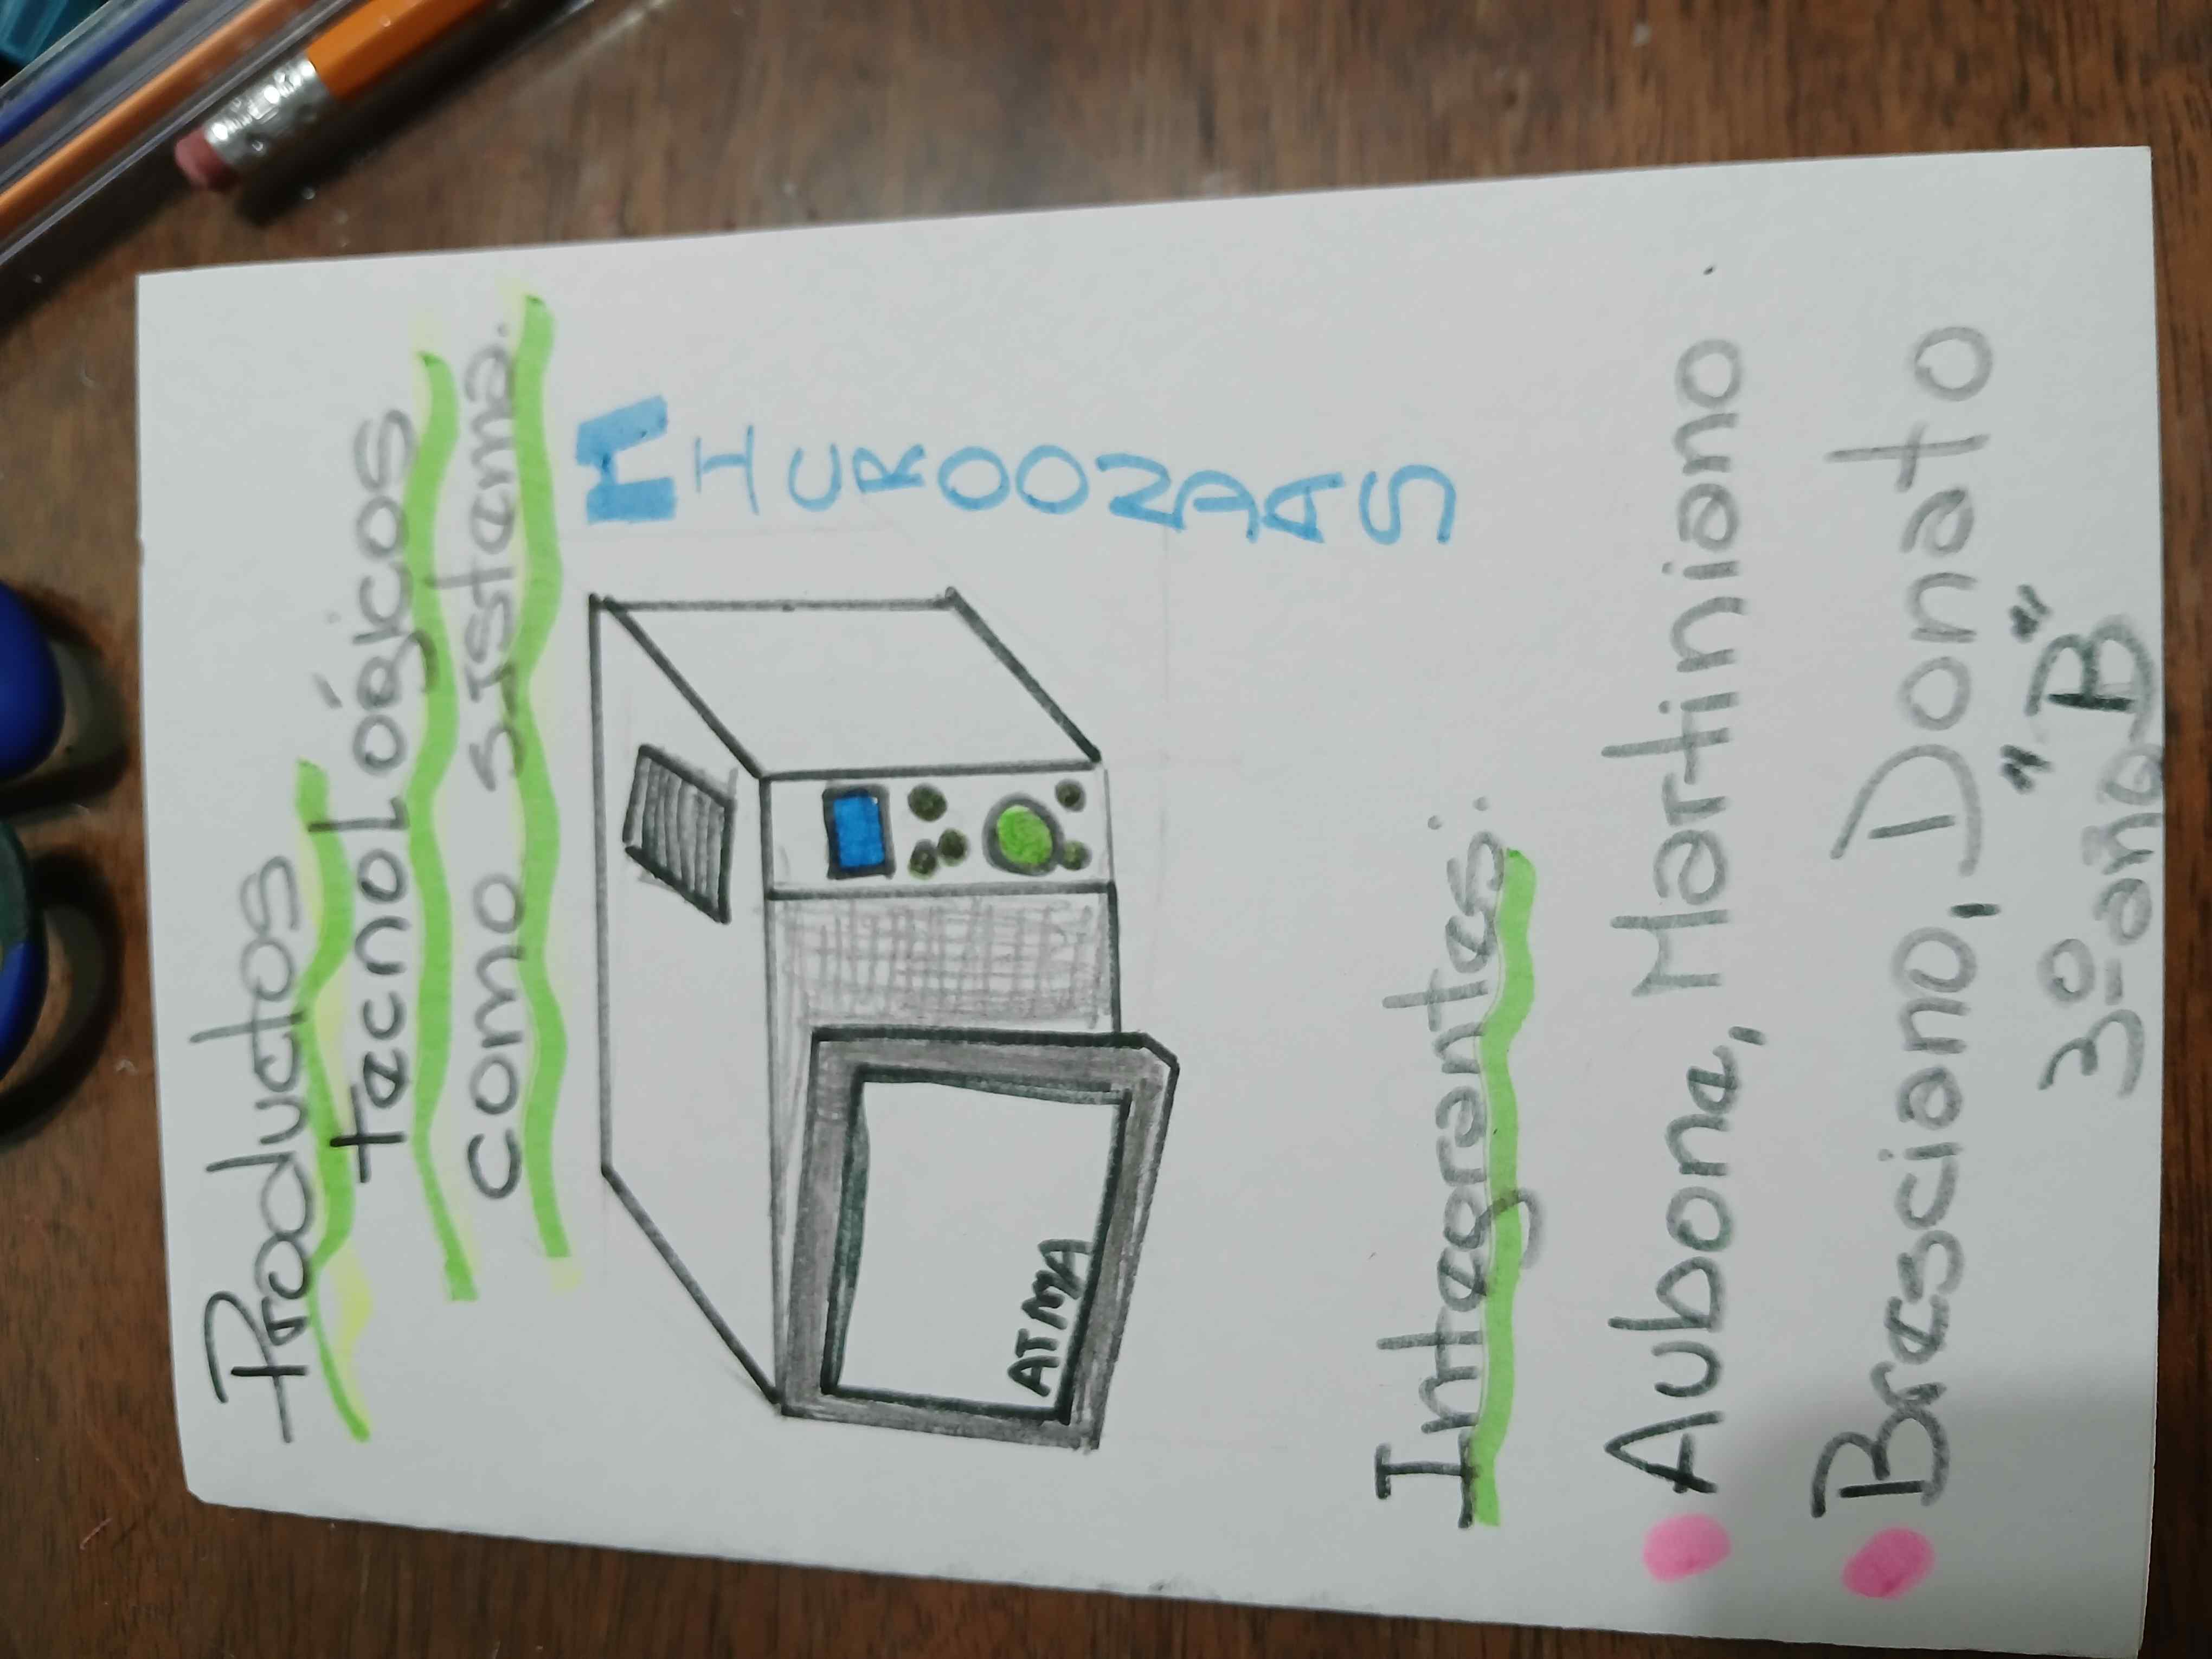 Productos
tecnológicos
como sistema.
MICROONDAS
ATMA
Integrantes:
Aubone, Martiniano.
Bresciano, Donato
3º año "B"